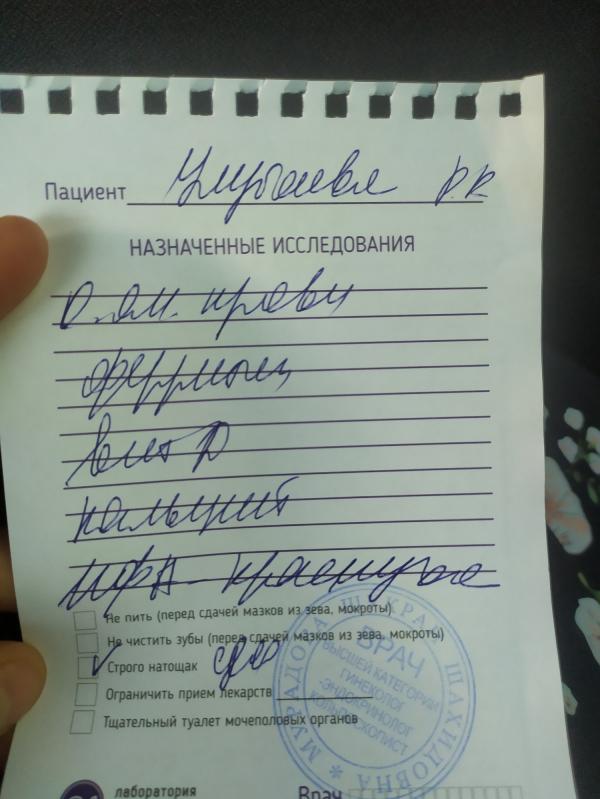 Пациент Р.К.
НАЗНАЧЕННЫЕ ИССЛЕДОВАНИЯ
О.ам. крови
ферритин
вит D
кальций
ИФА - краснуха
Не пить (перед сдачей мазков из зева, мокроты)
Не чистить зубы (перед сдачей мазков из зева, мокроты)
Строго натощак
Ограничить прием лекарств
Тщательный туалет мочеполовых органов
МУРАДОВА ШАКРАН ШАХИДОВНА
ВРАЧ
ВЫСШЕЙ КАТЕГОРИИ
ГИНЕКОЛОГ
-ЭНДОКРИНОЛОГ
КОЛЬПОСКОПИСТ
лаборатория
Врач